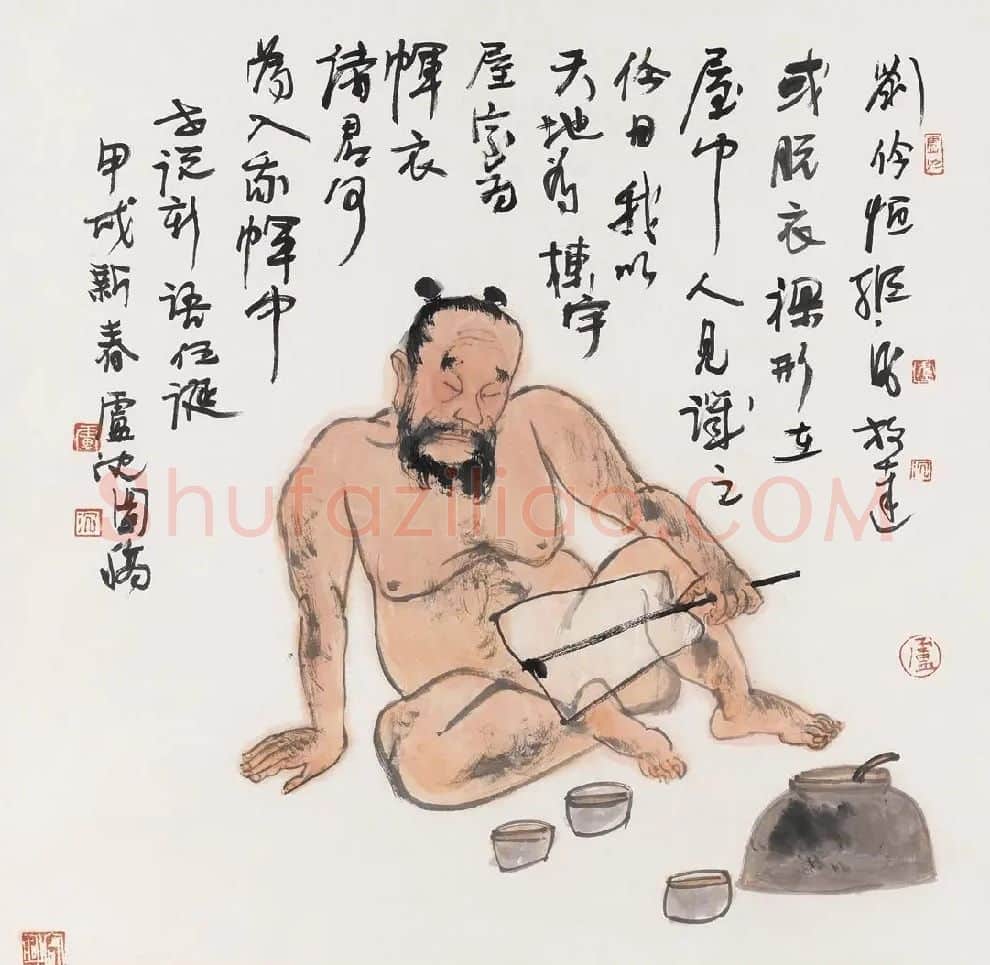 劉伶恒縱酒放達
或脱衣裸形在
屋中人見譏之
伶曰我以
天地為棟宇
屋室為
㡓衣
諸君何
為入我㡓中
世説新語任誕
甲戌新春盧沈圖
Shufaziliao.COM